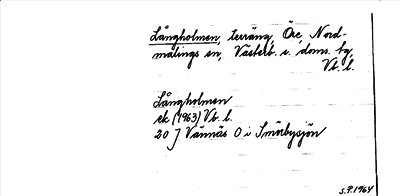 Långholmen, terräng, Öre, Nord-
malings sn, Västerb. s. doms. tg,
Vb. l.
Långholmen
ek (1963) Vb. l.
20 J Vännäs O i Smörbysjön
S.P.1964